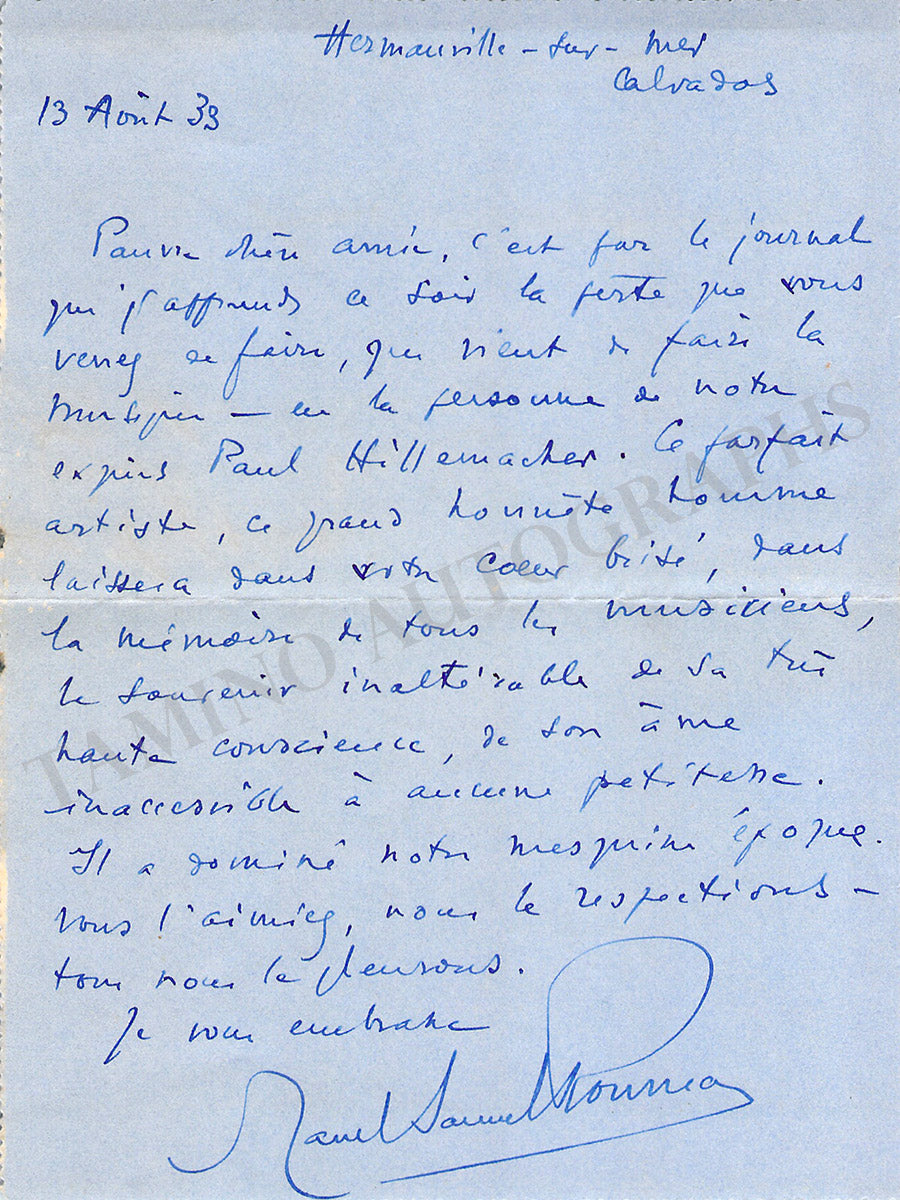 Hermanville - sur - mer
Calvados
13 Août 33
Pauvre chère amie, c'est par le journal
que j'apprends ce soir la perte que vous
venez de faire, que vient de faire la
musique — en la personne de notre
Paul Hillemacher. Ce parfait
artiste, ce grand honnête homme
laissera dans votre cœur brisé, dans
la mémoire de tous les musiciens,
le souvenir inaltérable de sa très
haute conscience, de son âme
inaccessible à aucune petitesse.
Il a dominé notre mesquine époque.
Vous l'aimiez, nous le respections —
tous nous le pleurons.
Je vous embrasse
Marcel Samuel Rousseau
TAMINO AUTOGRAPHS